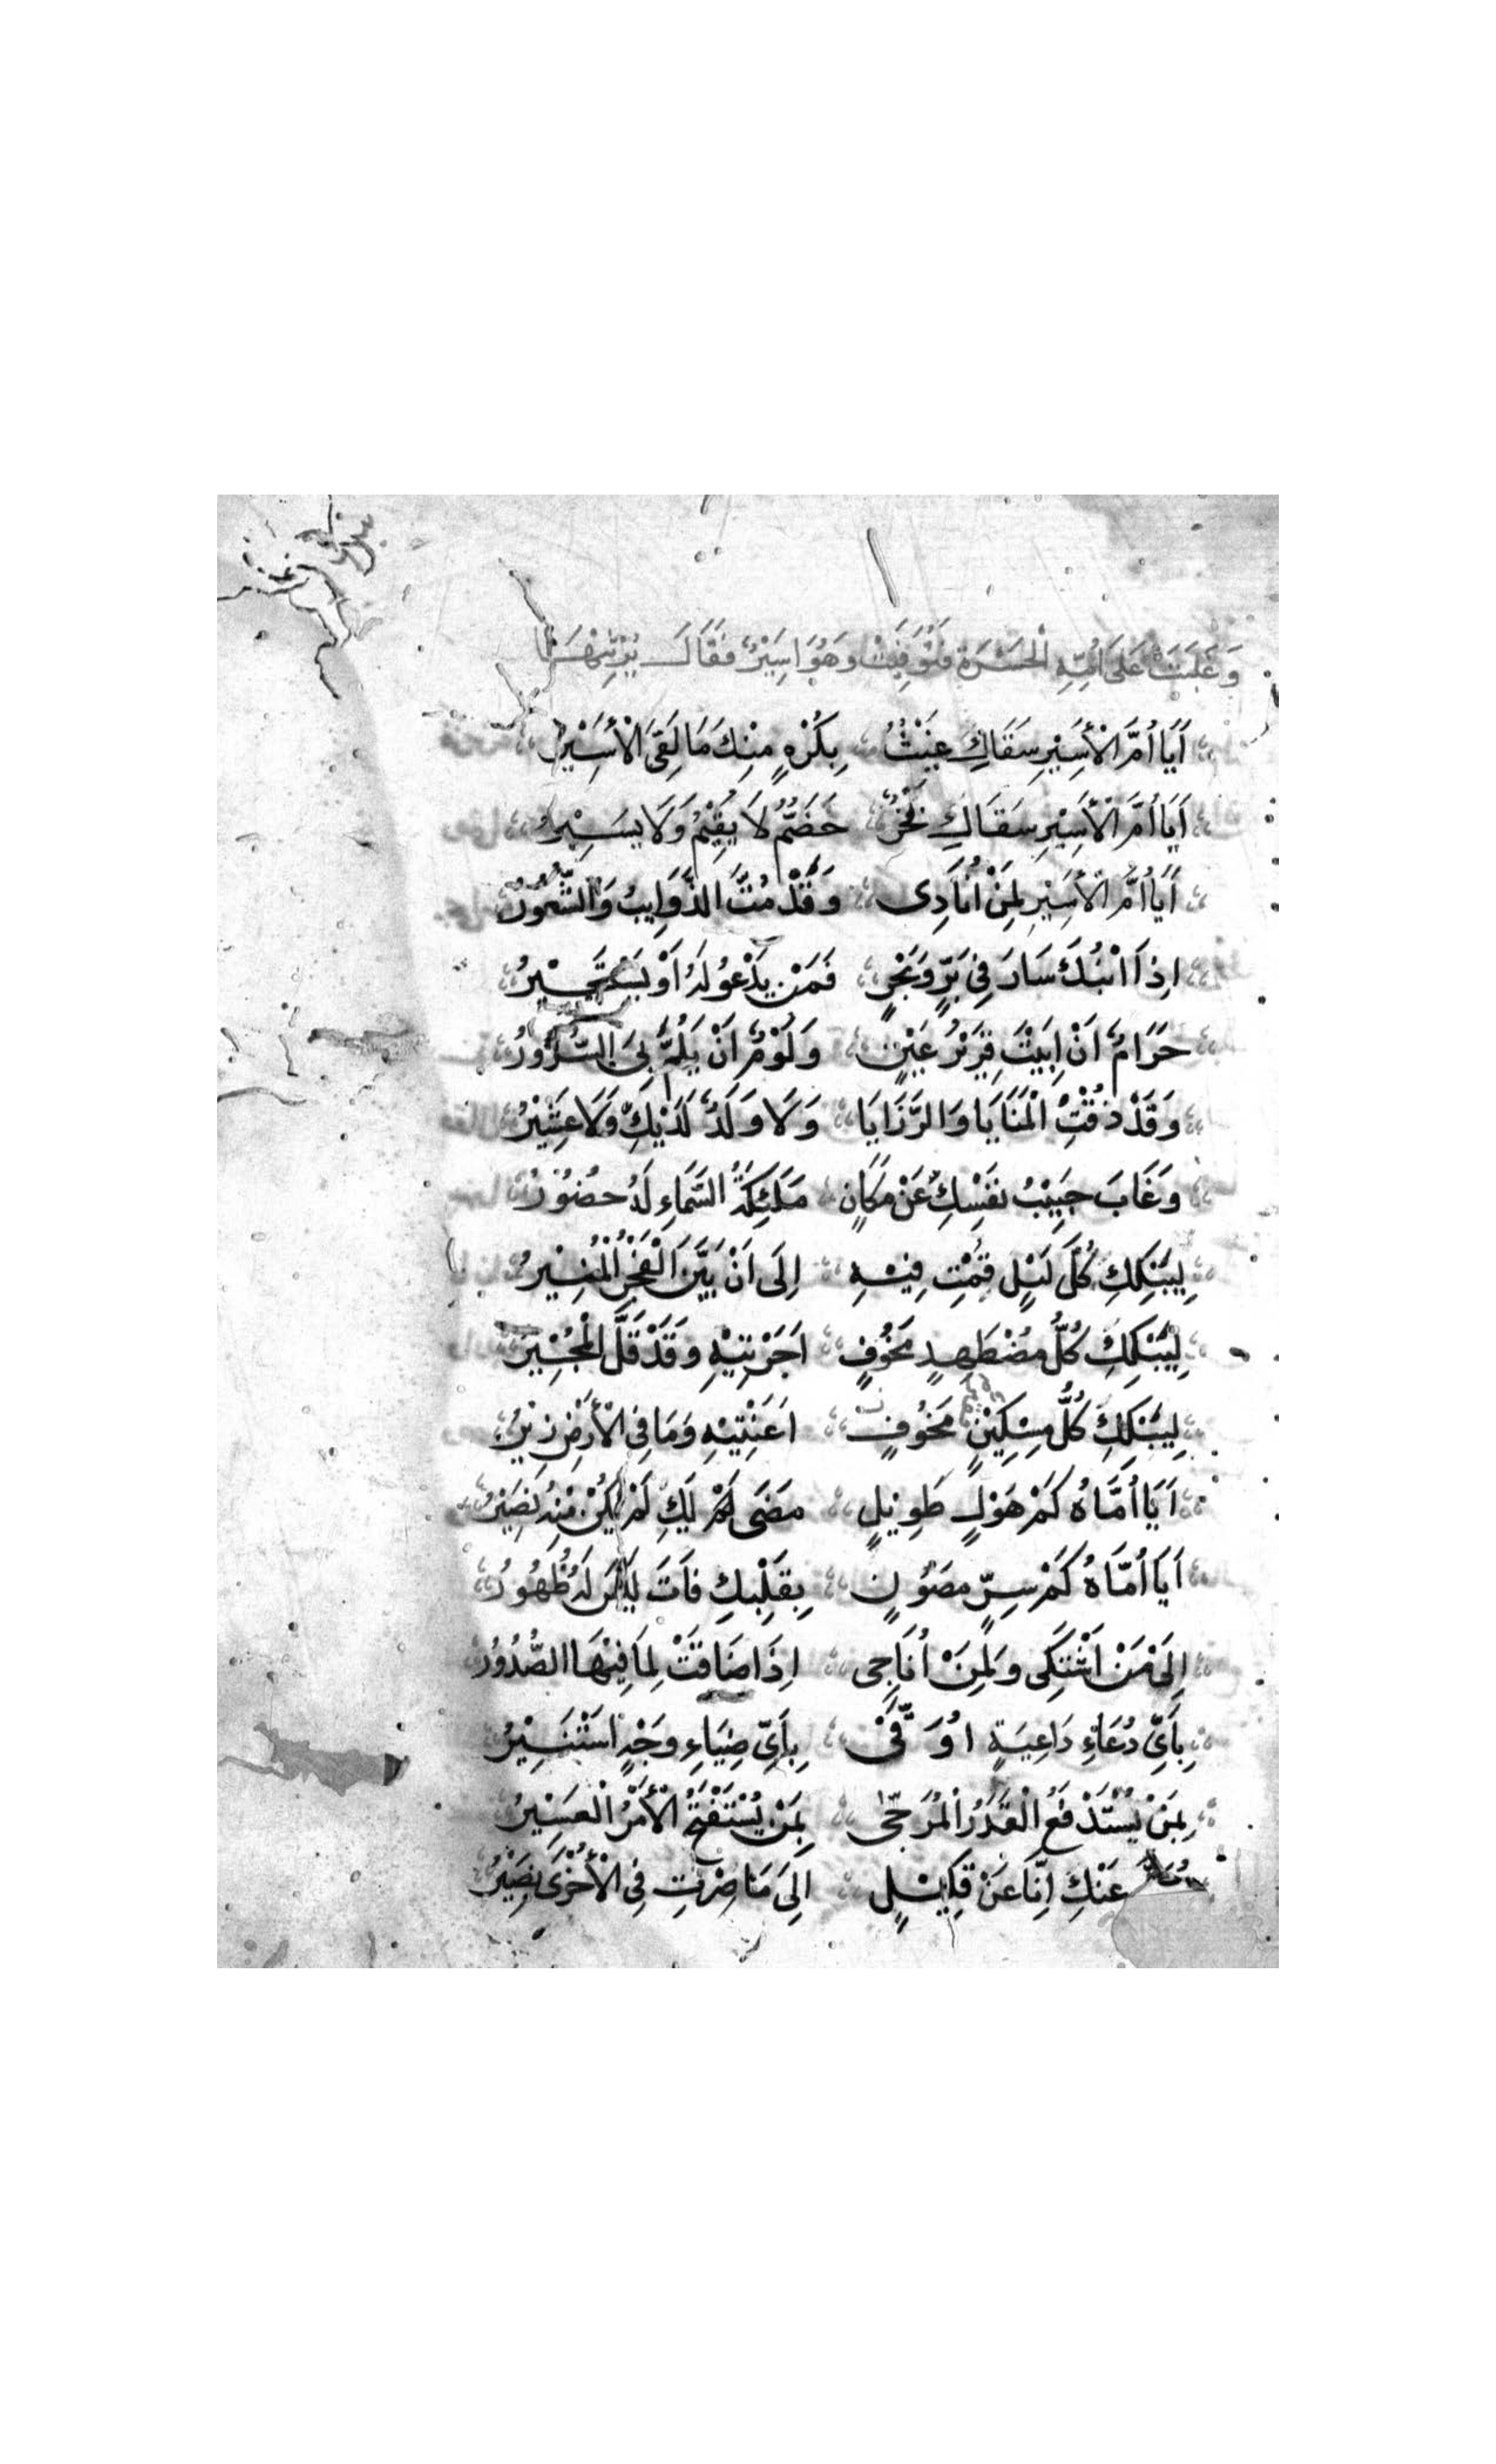 وَغَلَبَتْ عَلَى اُمِّهِ الْحَسْرَة فَتُوُفِّيَتْ وَهُوَ اَسِيْرٌ فَقَالَ يَرْثِيْهَا
اَيَا اُمَّ الْأَسِيْرِ سَقَاكِ غَيْثٌ بِكُرْهٍ مِنْكِ مَا لَقِيَ الْأَسِيْرُ
اَيَا اُمَّ الْأَسِيْرِ سَقَاكِ لَا يُقِيْمُ وَلَا يَسِيْرُ
اَيَا اُمَّ الْأَسِيْرِ لِمَنْ اُنَادِى وَقَدْ مُتِّ الذَّوَايِبُ وَالشُّعُوْرُ
اِذَا اَبْنُكِ سَارَ فِي بَرٍّ وَبَحْرٍ فَمَنْ يَدْعُو لَهُ اَوْ يَسْتَجِيْرُ
حَرَامٌ اَنْ اَبِيْتَ قَرِيْرَ عَيْنٍ وَلَوْمٌ اَنْ يُلِمَّ بِيَ السُّرُوْرُ
وَقَدْ ذُقْتِ الْمَنَايَا وَالرَّزَايَا وَلَا وَلَدٌ لَدَيْكِ وَلَا عَشِيْرُ
وَغَابَ حَبِيْبُ نَفْسِكِ عَنْ مَكَانٍ مَلَئِكَةُ السَّمَاءِ لَهُ حُضُوْرُ
لِيَبْكِكِ كُلَّ لَيْلٍ قُمْتِ فِيْهِ اِلَى اَنْ بَيَّنَ الْفَجْرُ الْمُنِيْرُ
لِيَبْكِكِ كُلُّ مُضْطَهِدٍ مَخُوْفٍ اَجَرْتِيْهِ وَقَدْ قَلَّ الْمُجِيْرُ
لِيَبْكِكِ كُلُّ مِسْكِيْنٍ مَخُوْفٍ اَعَنْتِيْهِ وَمَا فِي الْأَرْضِ زِيْرُ
اَيَا اُمَّاهُ كَمْ هَوْلٍ طَوِيْلٍ مَضَى لَكِ لَمْ يَكُنْ مِنْهُ نَصِيْرُ
اَيَا اُمَّاهُ كَمْ سِرٍّ مَصُوْنٍ بِقَلْبِكِ فَاتَ لَيْسَ لَهُ ظُهُوْرُ
اِلَى مَنْ اَشْتَكِى وَلِمَنْ اُنَاجِى اِذَا ضَاقَتْ لِمَا فِيْهَا الصُّدُوْرُ
بِاَيِّ دُعَاءِ دَاعِيَةٍ اُوَقَّى بِاَيِّ ضِيَاءِ وَجْهٍ اَسْتَنِيْرُ
بِمَنْ يُسْتَدْفَعُ الْقَدَرُ الْمُرَجَّى بِمَنْ يُسْتَفْتَحُ الْأَمْرُ الْعَسِيْرُ
عَنْكِ اِنَّا عَنْ قَلِيْلٍ اِلَى مَا صِرْتِ فِى الْأُخْرَى نَصِيْرُ